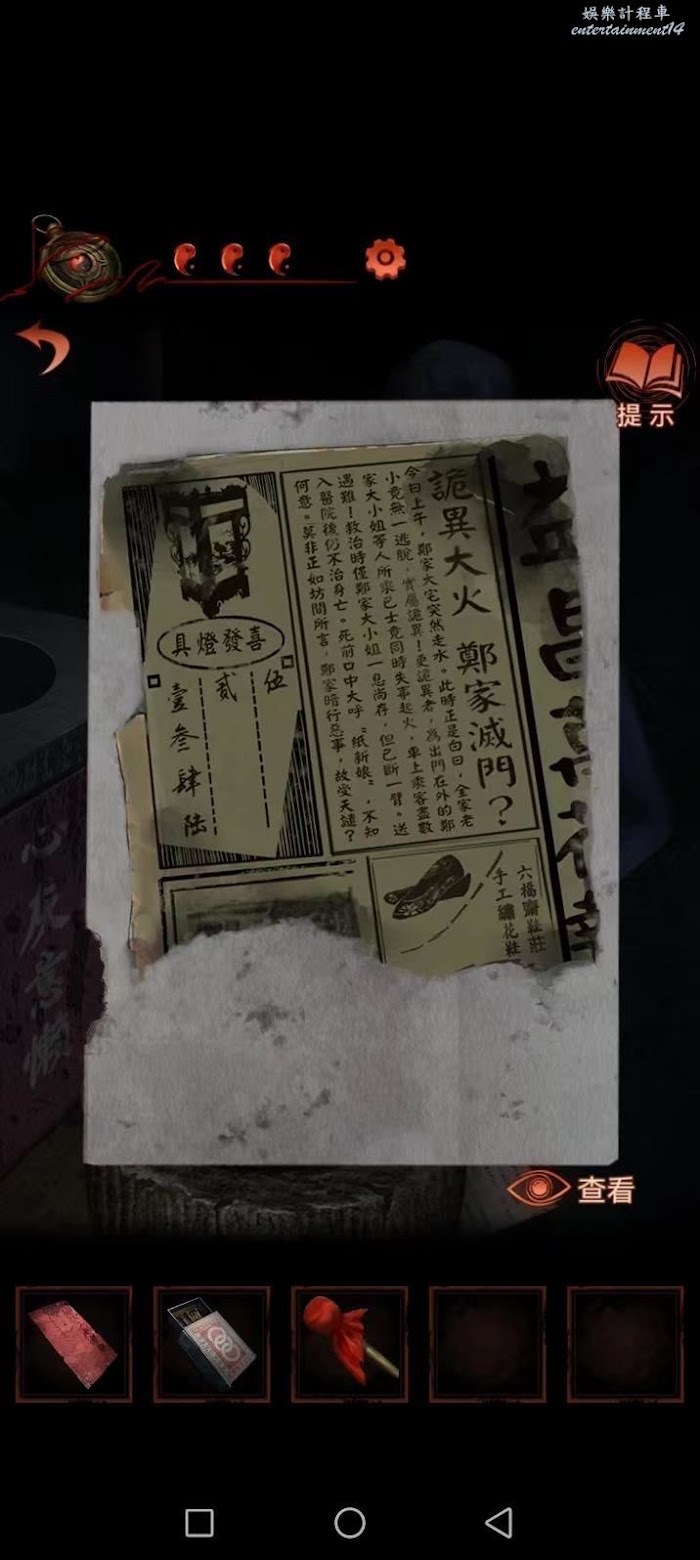 娛樂計程車
entertainment14
提示
詭異大火 鄭家滅門？
今日上午，鄭家大宅突然走水。此時正是白日，全家老
小竟無一逃脫，實屬詭異！更詭異者，為出門在外的鄭
家大小姐等人所乘巴士竟同時失事起火，車上乘客盡數
遇難！救治時僅鄭家大小姐一息尚存，但已斷一臂。送
入醫院後仍不治身亡。死前口中大呼“纸新娘”，不知
何意。莫非正如坊間所言，鄭家暗行惡事，故受天譴？
喜發燈具
伍
貳
壹叁肆陸
六橋齋鞋莊
手工繡花鞋
心灰意懶
查看